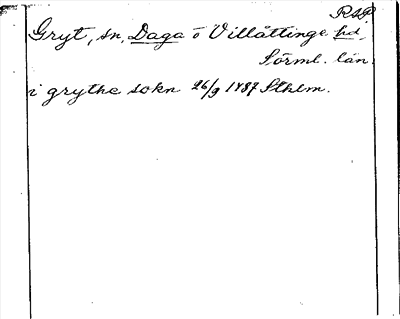 RAP.
Gryt, sn, Daga o Villåttinge hd,
Sörml. län.
i grythe sokn 26/9 1487 Sthlm.